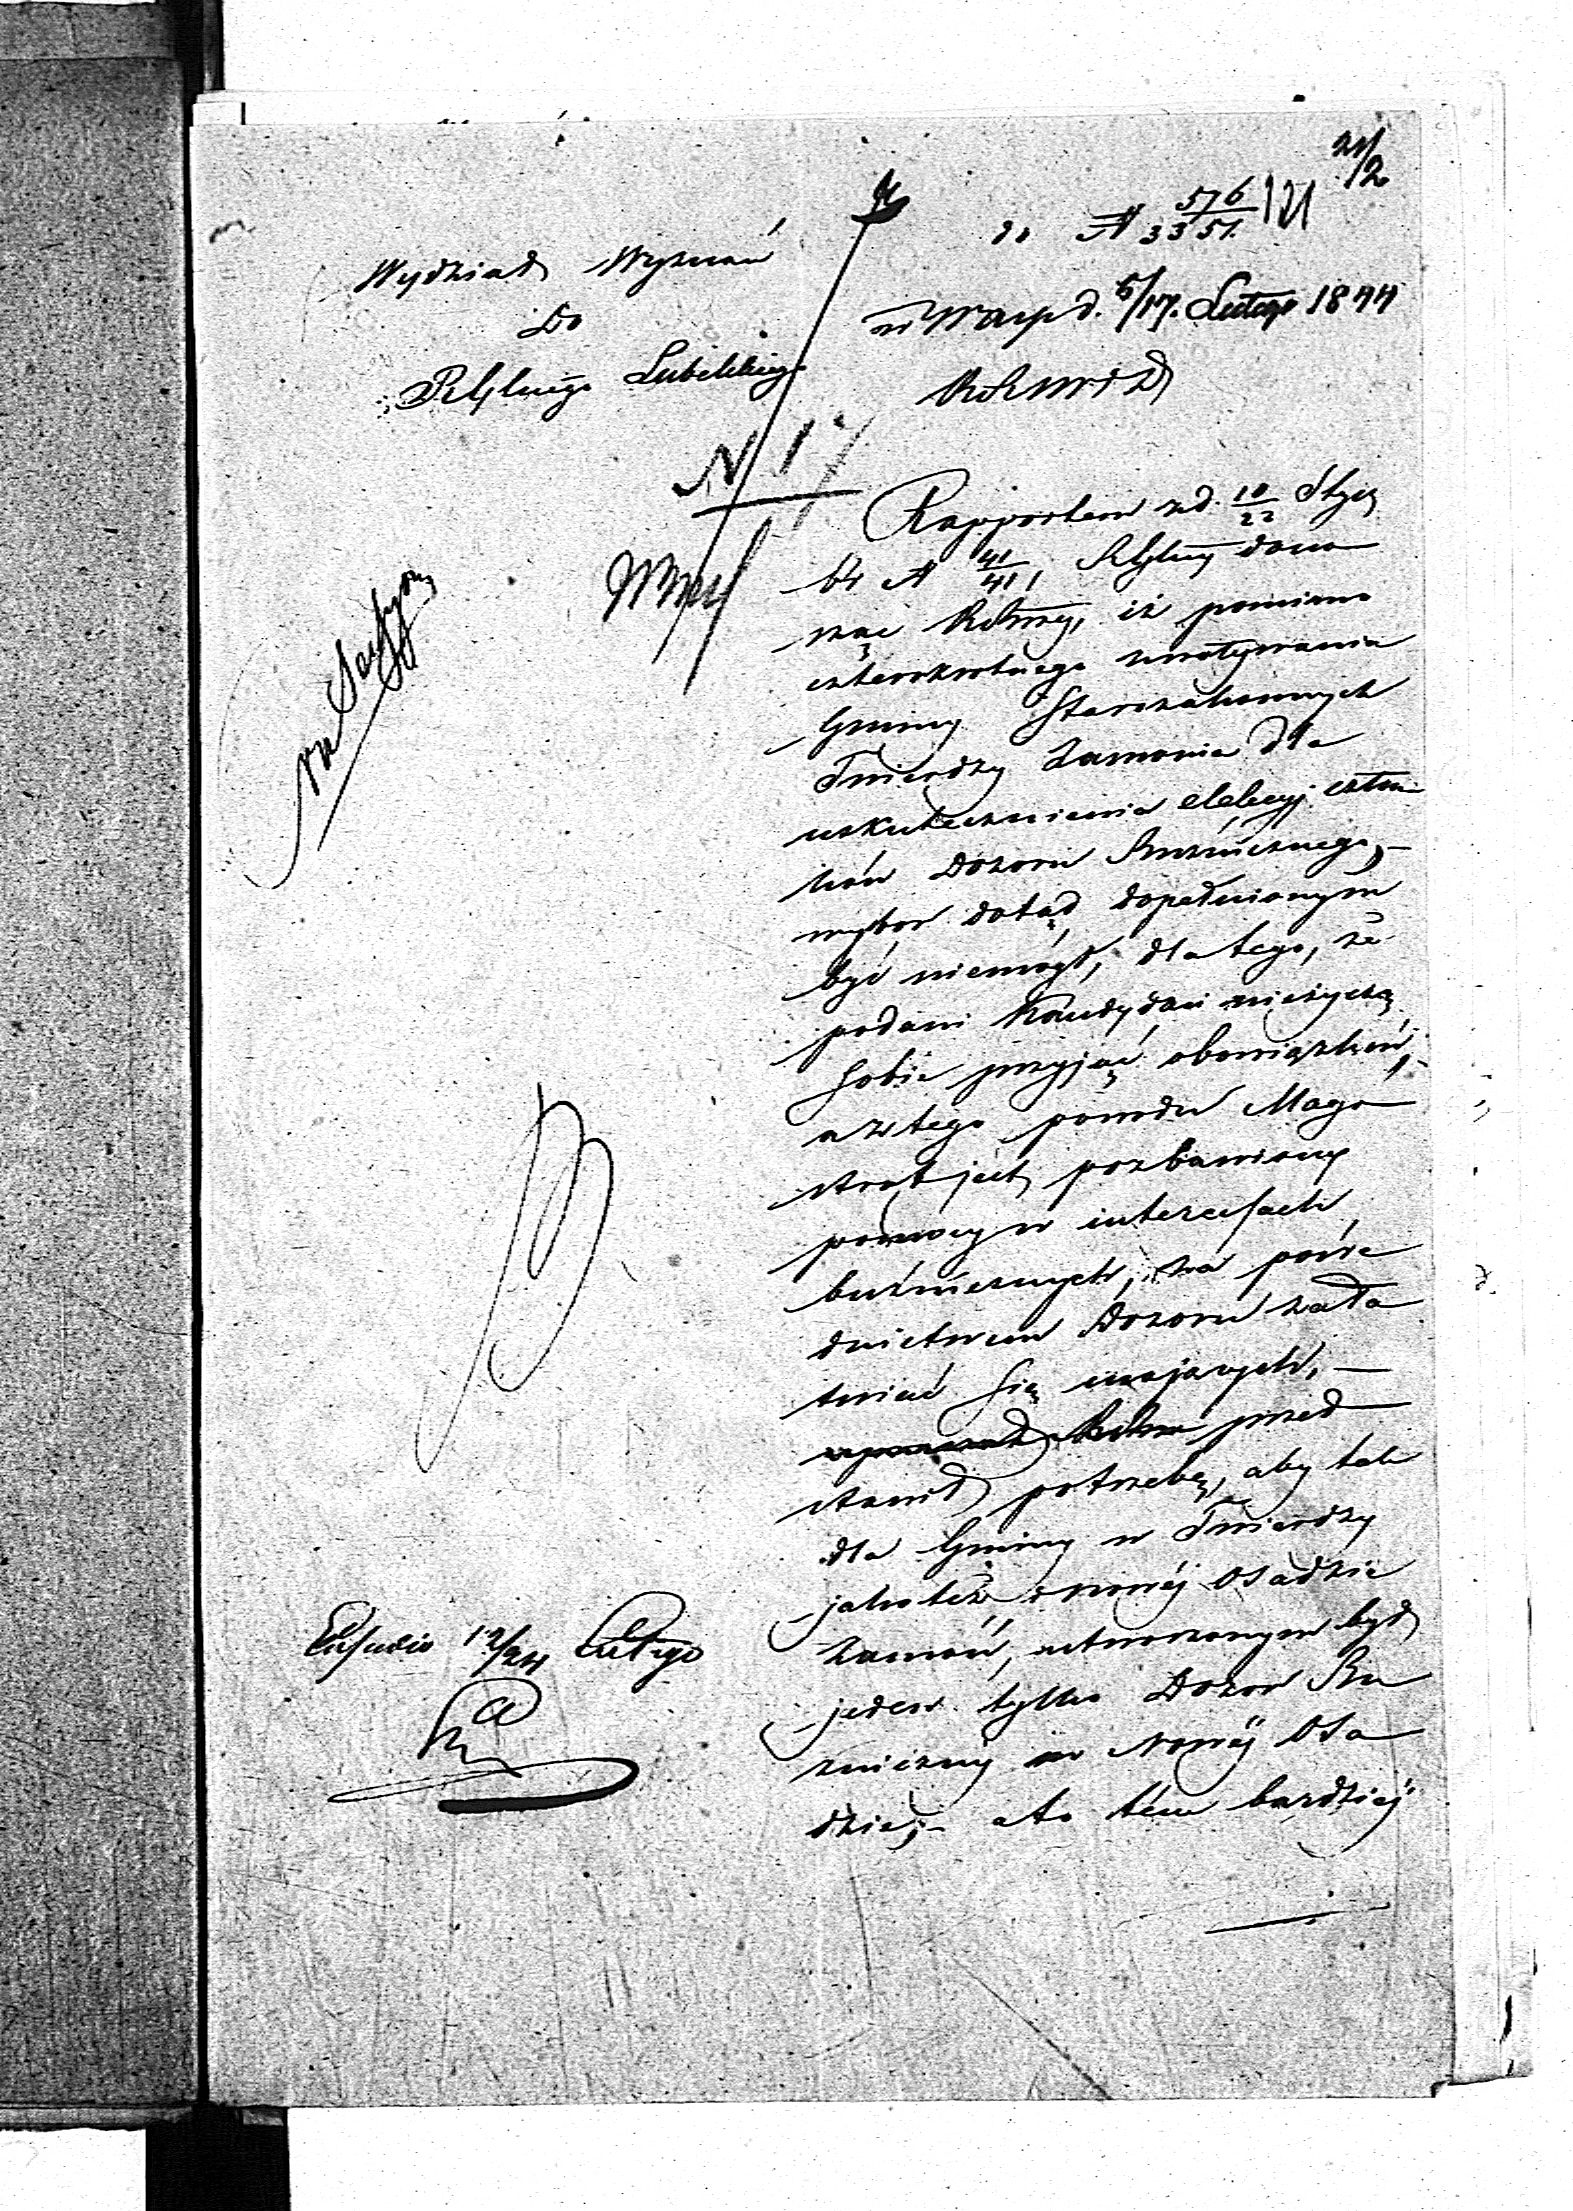 21/2
do N 576/3351 121
Wydział Wyznań
Do
Lubelskiego
w Warsz d. 5/17. Lutego 1844
N 1
Rapportem z d. 10/22 Stycz
br N 41/41, donosząc
iż pomimo
czterokrotnego zwoływania
Gminy Starozakonnych
Twierdzy Zamoscia dla
uskutecznienia elekcyj człon-
ków Dozoru Bużniczego,
wybor dotąd dopełnionym
być niemógł, dla tego, że
podani Kandydaci nieżyczą
sobie przyjąć obowiązków,
a z tego powodu Magi
strat jest pozbawiony
pomocy w interessach
bużniczych, za pośre
dnictwem Dozoru zała
twiać się mających,
przed
stawił potrzebę, aby tak
dla Gminy w Twierdzy
jakoteż i nowéj Osadzie
Zamość, utworzonym był
jeden tylko Dozor Bu
żniczny w Nowéj Osa
dzie, a to tém bardziéj
na Sessyą
12/24 Lutego